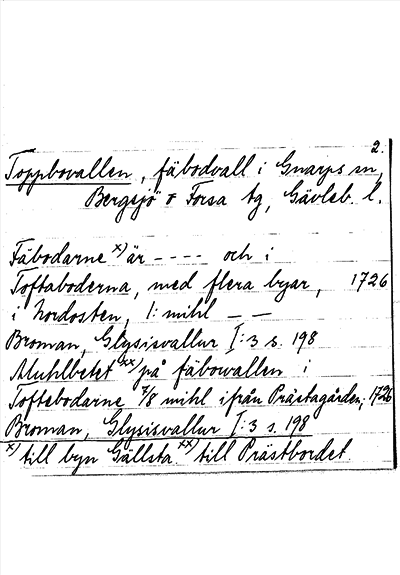 2.
Toppbovallen, fäbodvall i Gnarps sn,
Bergsjö o Forsa tg, Gävleb. l.
Fäbodarne x) är - - - - och i
Toftaboderna, med flera byar, 1726
i Nordosten, 1: mihl - -
Broman, Glysisvallur I:3 s. 198
Muhlbetet xx) på fäbowallen i
Toftebodarne 7/8 mihl ifrån Prästagården; 1726
Broman, Glysisvallur I:3 s. 198
x) till byn Gällsta xx) till Prästbordet